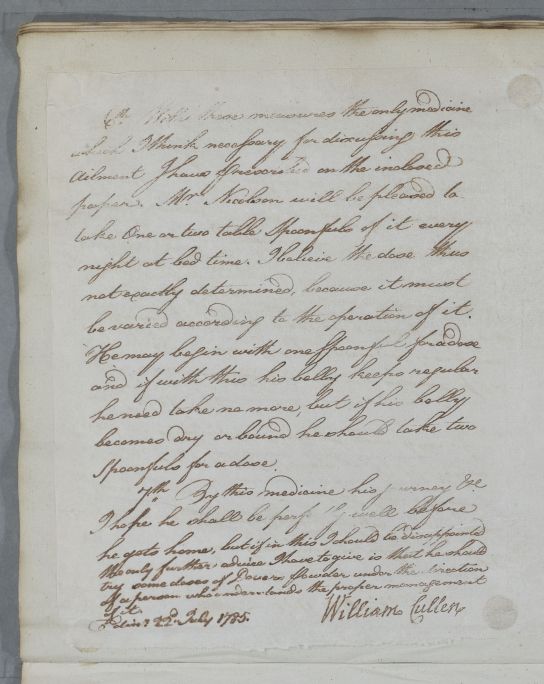 6th With these measures the only medicine
which I think necessary for discussing this
Ailment I have prescribed on the inclosed
paper. Mr. Nicolson will be pleased to
take One or two table Spoonfuls of it every
night at bed time. I believe the dose thus
not exactly determined, because it must
be varied according to the operation of it.
He may begin with one Spoonful for a dose
and if with this his belly keeps regular
he need take no more, but if his belly
becomes dry or bound he should take two
Spoonfuls for a dose.
7th By this medicine his journey &c
I hope he shall be perfectly well before
he gets home, but if in this I should be disappointed
the only further advice I have to give is that he should
try some doses of Dovers Powder under the direction
of a person who understands the proper management
of it.
Edinr 22d July 1785. William Cullen